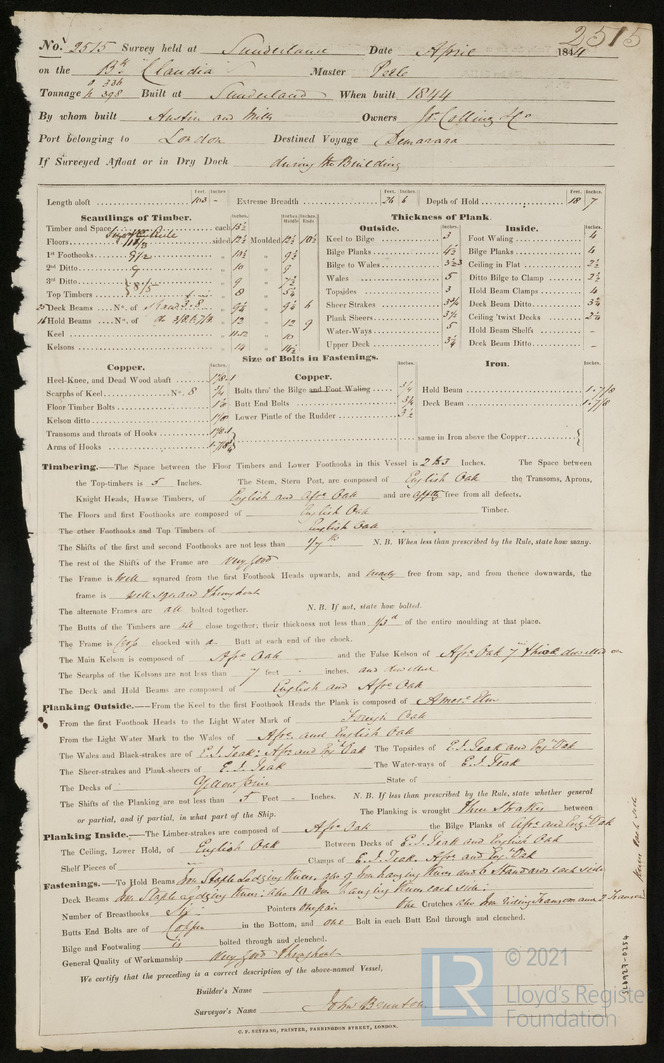 2515
No. 2515 Survey held at Sunderland Date April 1844
on the Bk "Claudia" Master Peele
Tonnage 336 398 Built at Sunderland When built 1844
By whom built Austin and Mills Owners W. Colling & Co
Port belonging to London Destined Voyage Demarara
If Surveyed Afloat or in Dry Dock during the Building
Feet. Inches. Feet. Inches. Feet. Inches.
Length aloft 103 - Extreme Breadth 26 6 Depth of Hold 18 7
Scantlings of Timber. Thickness of Plank.
Outside. Inside.
Timber and Space each 15½ Keel to Bilge 3 Foot Waling 4
Floors sided 12½ Moulded 12½ 10½ Bilge Planks 4½ Bilge Planks 4
1st Foothooks 9½ 10½ 9½ Bilge to Wales Ceiling in Flat 2½
2nd Ditto 9 10 9 Wales 5 Ditto Bilge to Clamp 2½
3rd Ditto 9 7½ Topsides 3 Hold Beam Clamps 4
Top Timbers 8 5¼ Sheer Strakes 3¾ Deck Beam Ditto 3½
25 Deck Beams No. of 9¼ 9¼ 6 Plank Sheers 3½ Ceiling 'twixt Decks 2¼
16 Hold Beams No. of 12 12 9 Water-Ways 5 Hold Beam Shelfs -
Keel 11-12 10 Upper Deck 3¼ Deck Beam Ditto -
Kelsons 14 14½
Size of Bolts in Fastenings.
Copper. Copper. Iron.
Heel-Knee, and Dead Wood abaft 1⅛-1 Bolts thro' the Bilge and Foot Waling ¾ Hold Beam 1-7/8
Scarphs of Keel No. 8 ¾ Butt End Bolts ¾ Deck Beam 1-7/8
Floor Timber Bolts Lower Pintle of the Rudder 3½
Kelson ditto
Transoms and throats of Hooks same in Iron above the Copper
Arms of Hooks
Timbering.—The Space between the Floor Timbers and Lower Foothooks in this Vessel is 2 to 3 Inches. The Space between
the Top-timbers is 5 Inches. The Stem, Stern Post, are composed of English Oak the Transoms, Aprons,
Knight Heads, Hawse Timbers, of English and Afrn Oak and are free from all defects.
The Floors and first Foothooks are composed of English Oak Timber.
The other Foothooks and Top Timbers of English Oak
The Shifts of the first and second Foothooks are not less than 1/7th N.B. When less than prescribed by the Rule, state how many.
The rest of the Shifts of the Frame are very good
The Frame is well squared from the first Foothook Heads upwards, and nearly free from sap, and from thence downwards, the
frame is well squared throughout
The alternate Frames are all bolted together. N.B. If not, state how bolted.
The Butts of the Timbers are all close together; their thickness not less than 1/3rd of the entire moulding at that place.
The Frame is chocked with a Butt at each end of the chock.
The Main Kelson is composed of Afrn Oak and the False Kelson of Afrn Oak 7 in thick dowelled on
The Scarphs of the Kelsons are not less than 7 feet - inches. and dowelled
The Deck and Hold Beams are composed of English and Afrn Oak
Planking Outside.—From the Keel to the first Foothook Heads the Plank is composed of Amern Elm
From the first Foothook Heads to the Light Water Mark of Foreign Oak
From the Light Water Mark to the Wales of Afrn and English Oak
The Wales and Black-strakes are of E.I. Teak: Afrn and Engh Oak The Topsides of E.I. Teak and Engh Oak
The Sheer-strakes and Plank-sheers of E.I. Teak The Water-ways of E.I. Teak
The Decks of Yellow pine State of
The Shifts of the Planking are not less than 5 Feet - Inches. N.B. If less than prescribed by the Rule, state whether general
or partial, and if partial, in what part of the Ship. The Planking is wrought three Strakes between
Planking Inside.—The Limber-strakes are composed of Afrn Oak the Bilge Planks of Afrn and Engh Oak
The Ceiling, Lower Hold, of English Oak Between Decks of E.I. Teak and English Oak
Shelf Pieces of Clamps of E.I. Teak, Afrn and Engh Oak
Fastenings.—To Hold Beams Iron Staple Lodging Knees, also 9 Iron hanging Knees and 6 Standards each side
Deck Beams Iron Staple Lodging Knees: also 10 Iron hanging Knees each side:
Number of Breasthooks Six Pointers one pair One Crutches also Iron riding Transom and 2 Transom
Butts End Bolts are of Copper in the Bottom, and one Bolt in each Butt End through and clenched.
Bilge and Footwaling is bolted through and clenched.
General Quality of Workmanship very good throughout
We certify that the preceding is a correct description of the above-named Vessel,
Builder's Name
Surveyor's Name John Brunton
C. F. SEYFANG, PRINTER, FARRINGDON STREET, LONDON.
LR © 2021
Lloyd's Register
Foundation